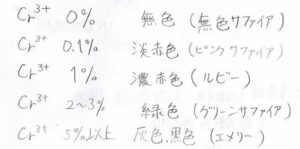 Cr³⁺ 0% 無色 (無色サファイア)
Cr³⁺ 0.1% 淡赤色 (ピンクサファイア)
Cr³⁺ 1% 濃赤色 (ルビー)
Cr³⁺ 2~3% 緑色 (グリーンサファイア)
Cr³⁺ 5%以上 灰色,黒色 (エメリー)